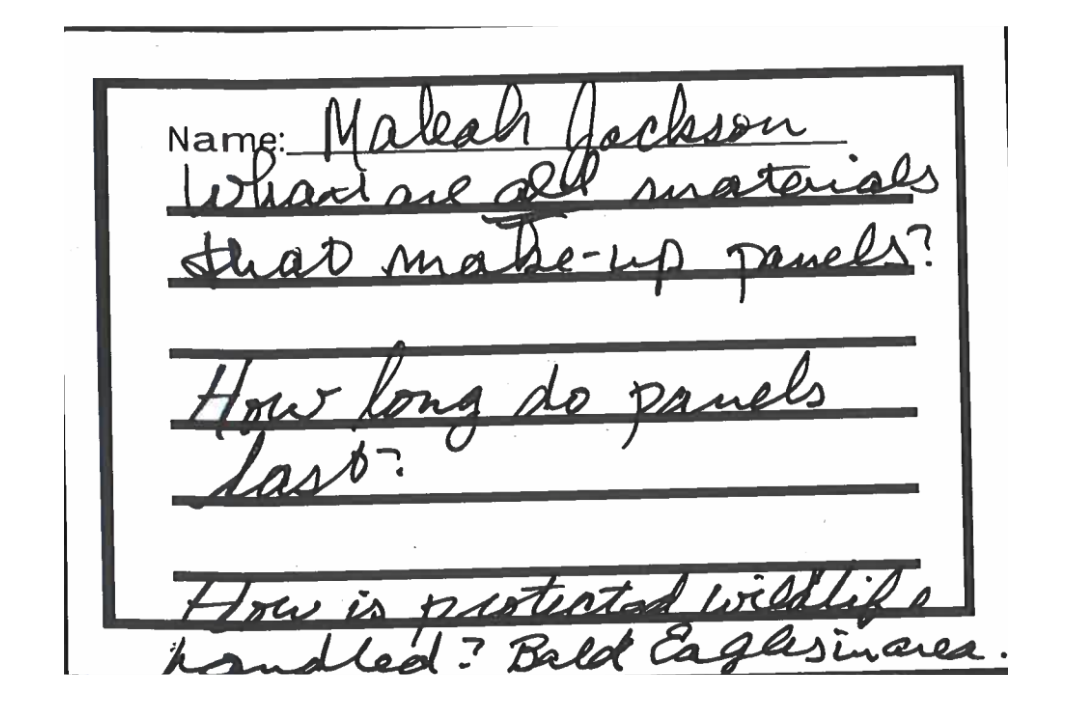 Name: Maleah Jackson
What are all materials
that make-up panels?
How long do panels
last?
How is protected wildlife
handled? Bald Eagles in area.